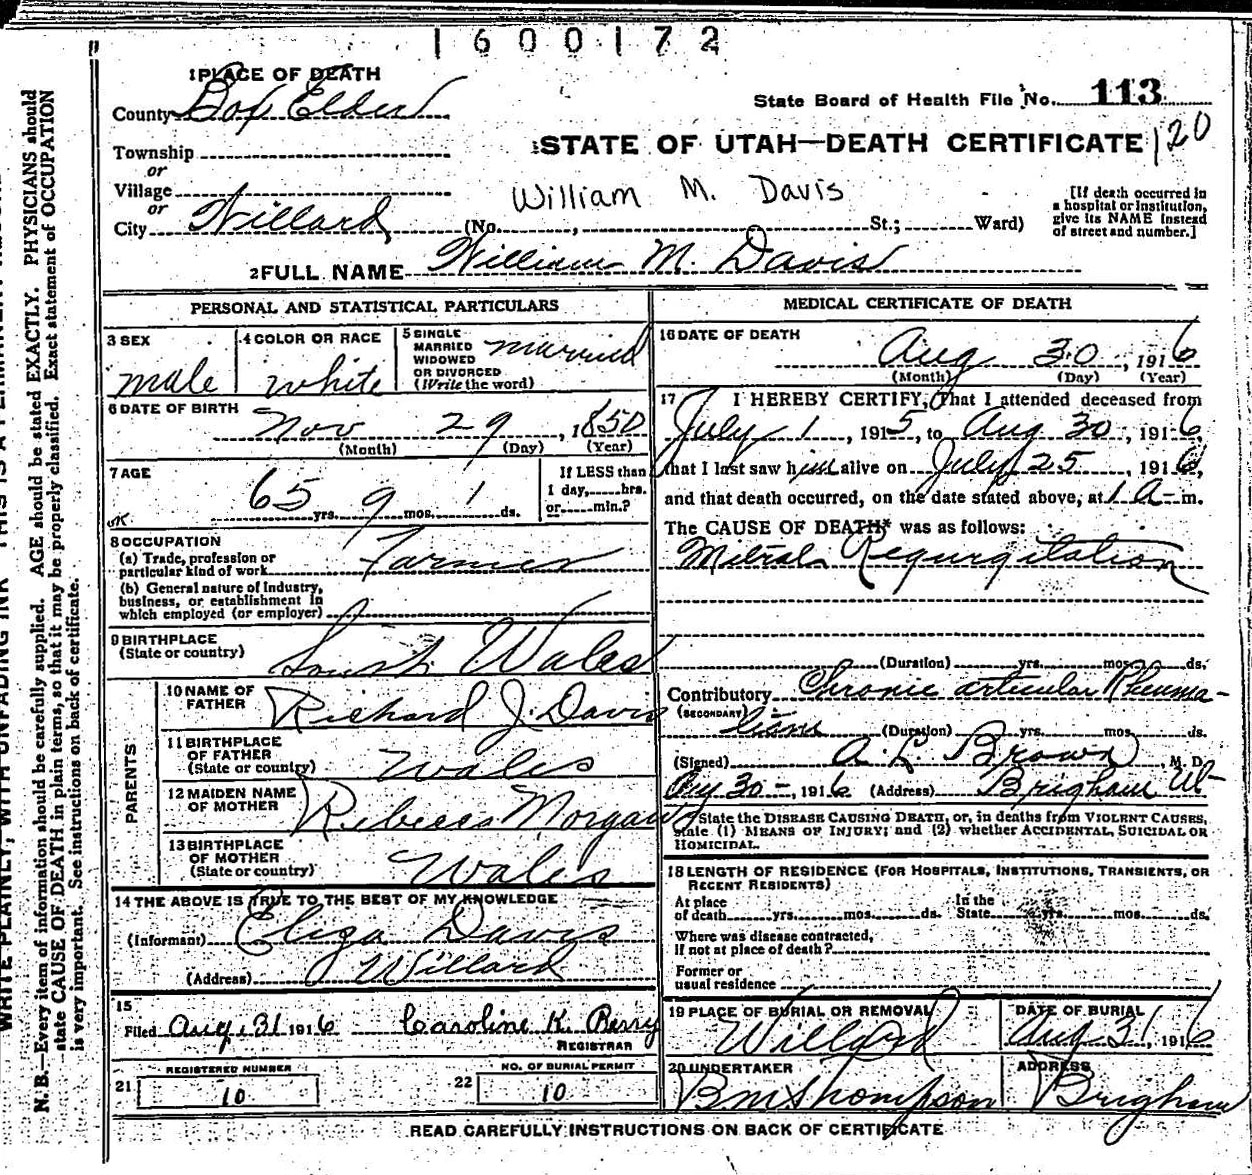 1600172
1 PLACE OF DEATH
County Box Elder
State Board of Health File No. 113
Township
STATE OF UTAH—DEATH CERTIFICATE 120
or
Village
William M. Davis
or
City Willard (No. , St.; Ward)
[If death occurred in
a hospital or institution,
give its NAME instead
of street and number.]
2 FULL NAME William M. Davis
PERSONAL AND STATISTICAL PARTICULARS
3 SEX
male
4 COLOR OR RACE
white
5 SINGLE
MARRIED
WIDOWED
OR DIVORCED
(Write the word)
married
6 DATE OF BIRTH
Nov 29, 1850
(Month) (Day) (Year)
7 AGE
65 yrs. 9 mos. 1 ds.
If LESS than
1 day, hrs.
or min.?
OK
8 OCCUPATION
(a) Trade, profession or
particular kind of work Farmer
(b) General nature of industry,
business, or establishment in
which employed (or employer)
9 BIRTHPLACE
(State or country) South Wales
PARENTS
10 NAME OF
FATHER Richard J. Davis
11 BIRTHPLACE
OF FATHER
(State or country) Wales
12 MAIDEN NAME
OF MOTHER Rebecca Morgan
13 BIRTHPLACE
OF MOTHER
(State or country) Wales
14 THE ABOVE IS TRUE TO THE BEST OF MY KNOWLEDGE
(Informant) Eliza Davis
(Address) Willard
15
Filed Aug. 31 1916 Caroline K. Berry
REGISTRAR
REGISTERED NUMBER
21 10
NO. OF BURIAL PERMIT
22 10
MEDICAL CERTIFICATE OF DEATH
16 DATE OF DEATH
Aug 30, 1916
(Month) (Day) (Year)
17 I HEREBY CERTIFY, That I attended deceased from
July 1, 1915, to Aug 30, 1916,
that I last saw him alive on July 25, 1916,
and that death occurred, on the date stated above, at 1 a-m.
The CAUSE OF DEATH* was as follows:
Mitral Regurgitation
(Duration) yrs. mos. ds.
Contributory Chronic articular Rheuma-
(SECONDARY) tism (Duration) yrs. mos. ds.
(Signed) A. L. Brown, M. D.
Aug 30-, 1916 (Address) Brigham Ut
*State the DISEASE CAUSING DEATH, or, in deaths from VIOLENT CAUSES,
state (1) MEANS OF INJURY; and (2) whether ACCIDENTAL, SUICIDAL OR
HOMICIDAL.
18 LENGTH OF RESIDENCE (FOR HOSPITALS, INSTITUTIONS, TRANSIENTS, OR
RECENT RESIDENTS)
At place
of death yrs. mos. ds.
In the
State yrs. mos. ds.
Where was disease contracted,
if not at place of death?
Former or
usual residence
19 PLACE OF BURIAL OR REMOVAL
Willard
DATE OF BURIAL
Aug 31, 1916
20 UNDERTAKER
B M Thompson
ADDRESS
Brigham
READ CAREFULLY INSTRUCTIONS ON BACK OF CERTIFICATE
WRITE PLAINLY, WITH UNFADING INK—THIS IS A PERMANENT RECORD
N. B.—Every item of information should be carefully supplied. AGE should be stated EXACTLY. PHYSICIANS should
state CAUSE OF DEATH in plain terms, so that it may be properly classified. Exact statement of OCCUPATION
is very important. See instructions on back of certificate.